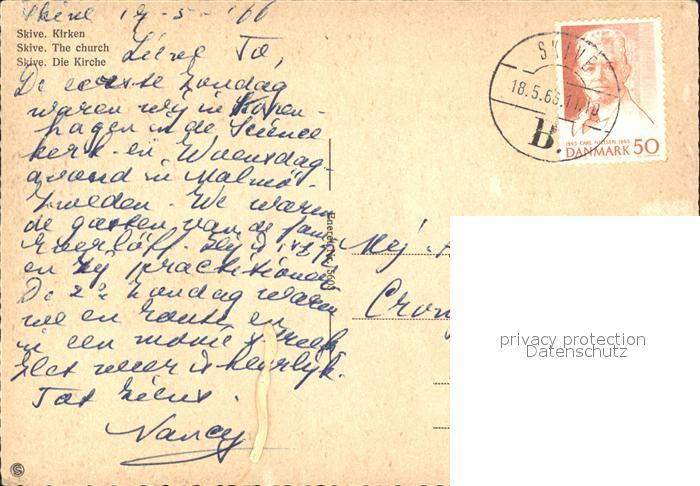 Skive 17-5-'66
Skive. Kirken
Skive. The church
Skive. Die Kirche
Lieve To,
De eerste Zondag
waren wij in Kopen-
hagen in de Science
kerk en Woensdag-
avond in Malmö-
Zweden. We waren
de gasten van de fam.
Hij is
en zij practitioner
De 2e Zondag waren
we en route en
in een mooie streek
Het weer is heerlijk.
Tot ziens.
Nancy
Eneret
Mej.
SKIVE
18.5.66.11
B.
1865 CARL NIELSEN 1965
DANMARK 50
privacy protection
Datenschutz